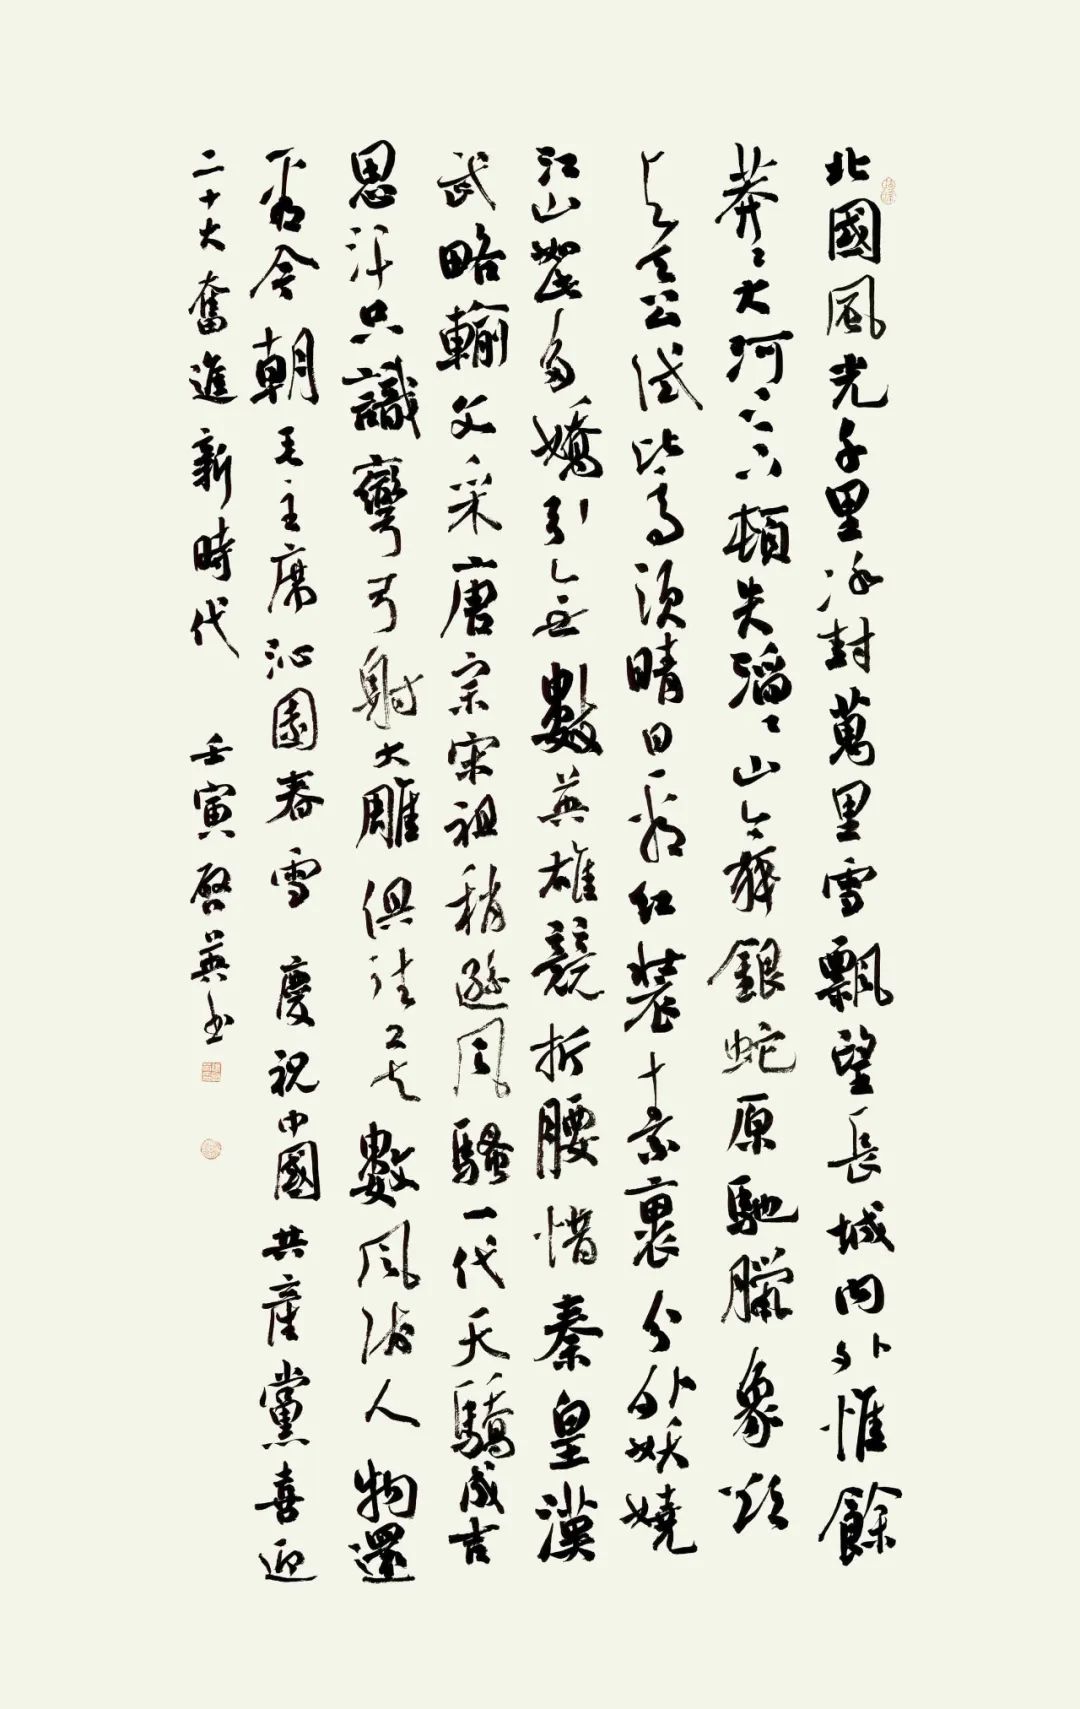 北國風光千里冰封萬里雪飄望長城內外惟餘
莽〻大河上下頓失滔〻山舞銀蛇原馳臘象欲
與天公試比高須晴日看紅裝素裹分外妖嬈
江山如此多嬌引無數英雄競折腰惜秦皇漢
武略輸文采唐宗宋祖稍遜風騷一代天驕成吉
思汗只識彎弓射大雕俱往矣數風流人物還
看今朝 毛主席沁園春雪 慶祝中國共產黨喜迎
二十大奮進新時代 壬寅啓英书